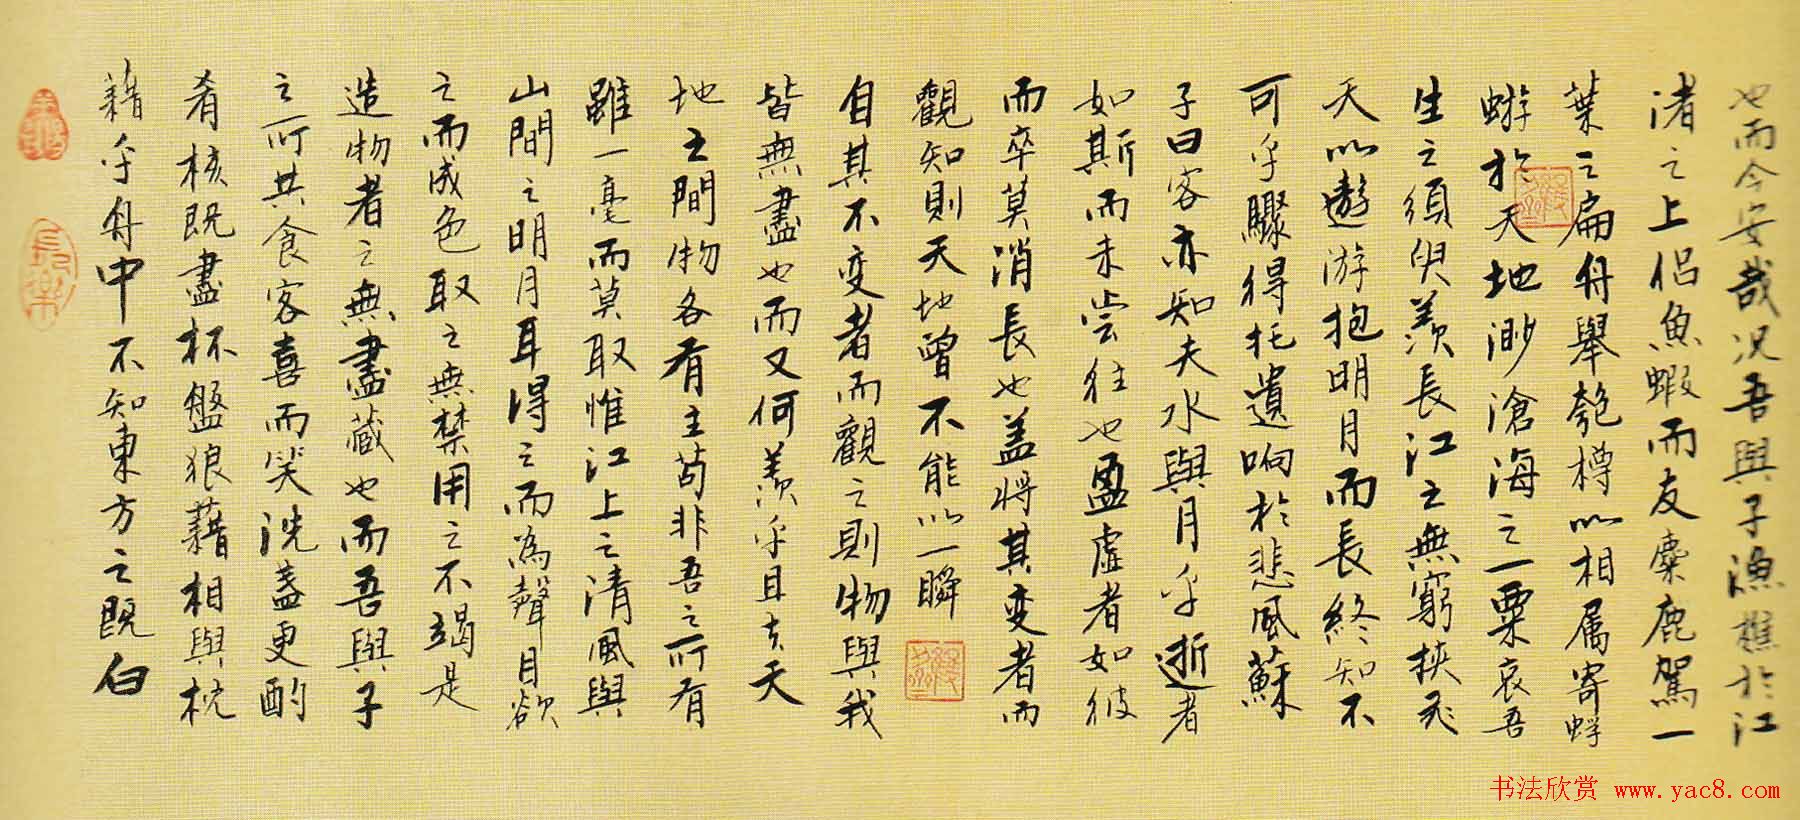 也而今安哉况吾與子漁樵於江
渚之上侣魚蝦而友麋鹿駕一
葉之扁舟舉匏樽以相属寄蜉
蝣於天地渺滄海之一粟哀吾
生之須臾羡長江之無窮挾飛
天以遨游抱明月而長終知不
可乎驟得托遺响於悲風蘇
子曰客亦知夫水與月乎逝者
如斯而未尝往也盈虚者如彼
而卒莫消長也盖將其变者而
觀知則天地曾不能以一瞬
自其不变者而觀之則物與我
皆無盡也而又何羡乎且夫天
地之間物各有主苟非吾之所有
雖一毫而莫取惟江上之清風與
山間之明月耳得之而為聲目欲
之而成色取之無禁用之不竭是
造物者之無盡藏也而吾與子
之所共食客喜而笑洗盏更酌
肴核既盡杯盤狼藉相與枕
藉乎舟中不知東方之既白
長樂
书法欣赏 www.yac8.com